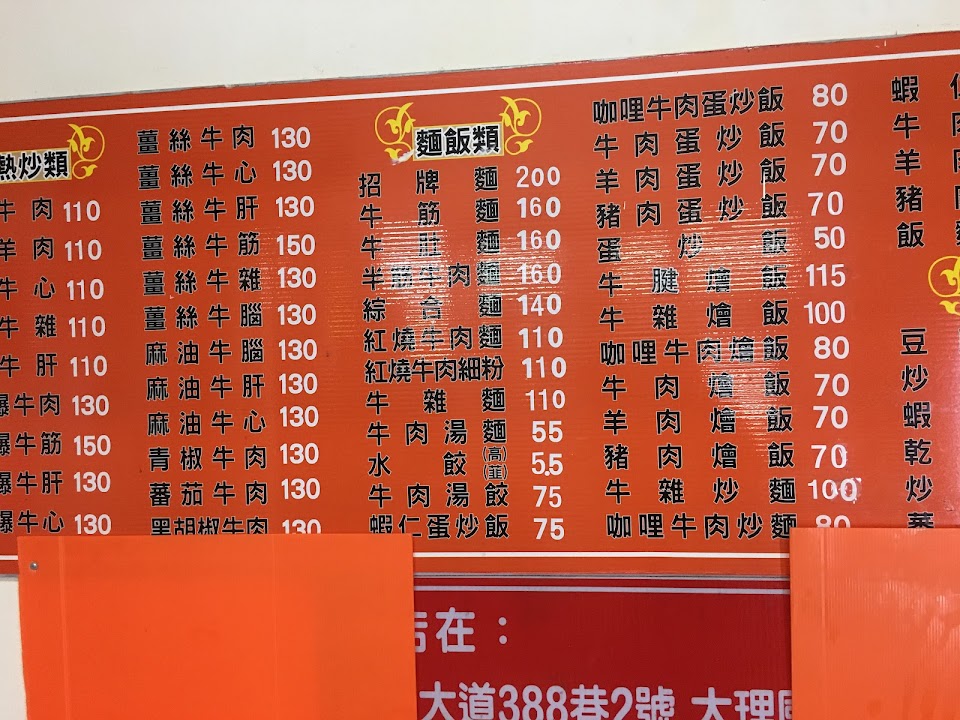 熱炒類
牛肉 110
羊肉 110
牛心 110
牛雜 110
牛肝 110
爆牛肉 130
爆牛筋 150
爆牛肝 130
爆牛心 130
薑絲牛肉 130
薑絲牛心 130
薑絲牛肝 130
薑絲牛筋 150
薑絲牛雜 130
薑絲牛腦 130
麻油牛腦 130
麻油牛肝 130
麻油牛心 130
青椒牛肉 130
蕃茄牛肉 130
黑胡椒牛肉 130
麵飯類
招牌麵 200
牛筋麵 160
牛肚麵 160
半筋牛肉麵 160
綜合麵 140
紅燒牛肉麵 110
紅燒牛肉細粉 110
牛雜麵 110
牛肉湯麵 55
水餃(高)(韮) 5.5
牛肉湯餃 75
蝦仁蛋炒飯 75
咖哩牛肉蛋炒飯 80
牛肉蛋炒飯 70
羊肉蛋炒飯 70
豬肉蛋炒飯 70
蛋炒飯 50
牛腱燴飯 115
牛雜燴飯 100
咖哩牛肉燴飯 80
牛肉燴飯 70
羊肉燴飯 70
豬肉燴飯 70
牛雜炒麵 100
咖哩牛肉炒麵 80
蝦
牛
羊
豬
飯
豆
炒
蝦
乾
炒
蕃
店在：
大道388巷2號 大理